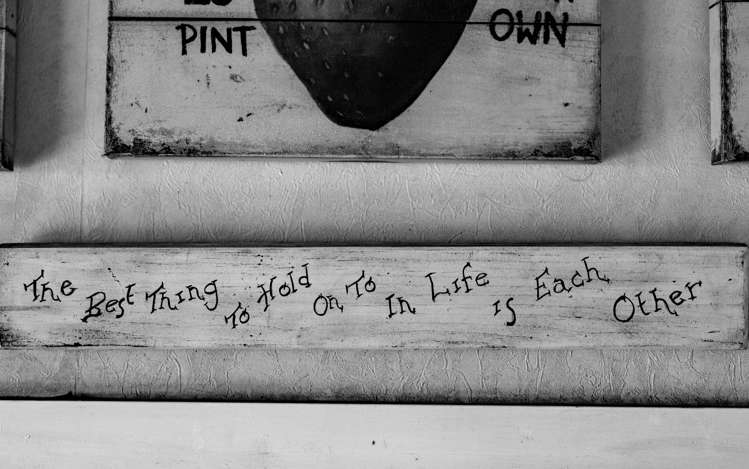 PINT
OWN
The Best Thing To Hold On To In Life is Each Other